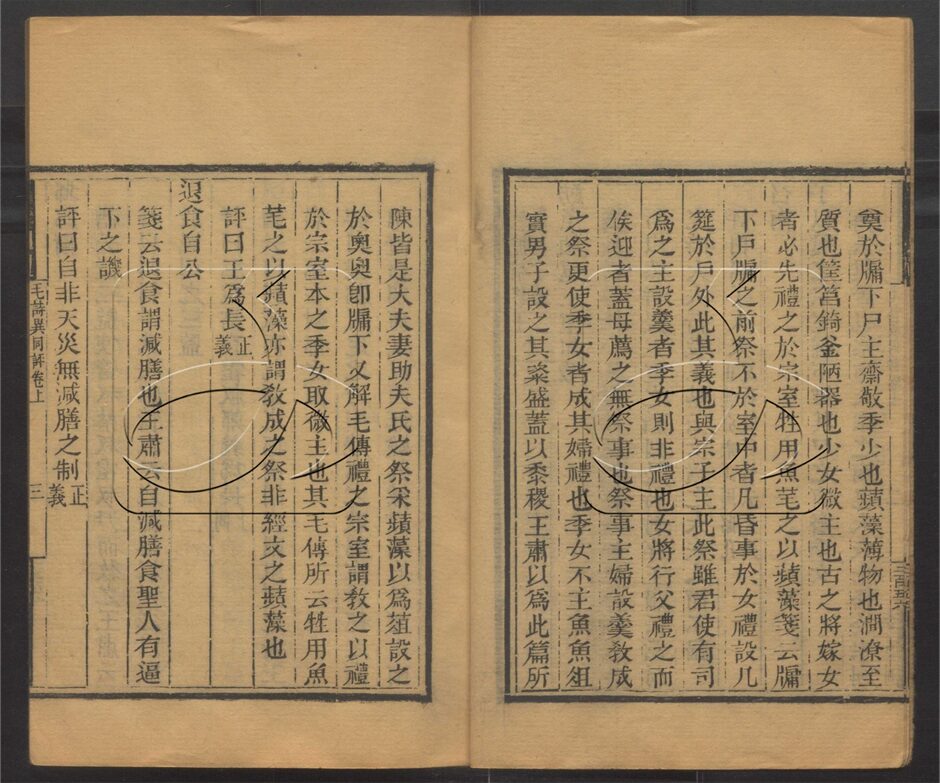 奠於牖下尸主齋敬季少也蘋藻薄物也澗潦至
質也筐筥錡釜陋器也少女微主也古之將嫁女
者必先禮之於宗室牲用魚芼之以蘋藻箋云牖
下戶牖之前祭不於室中者凡昏事於女禮設几
筵於戶外此其義也與宗子主此祭雖君使有司
爲之主設羹者季女則非禮也女將行父禮之而
俟迎者蓋母薦之無祭事也祭事主婦設羹教成
之祭更使季女者成其婦禮也季女不主魚魚俎
實男子設之其粢盛蓋以黍稷王肅以爲此篇所
陳皆是大夫妻助夫氏之祭采蘋藻以爲菹設之
於奧奧卽牖下又解毛傳禮之宗室謂教之以禮
於宗室本之季女取微主也其毛傳所云牲用魚
芼之以蘋藻亦謂教成之祭非經文之蘋藻也
評曰王爲長正義
退食自公
箋云退食謂減膳也王肅云自減膳食聖人有逼
下之譏
評曰自非天災無減膳之制正義
毛詩異同評卷上
三